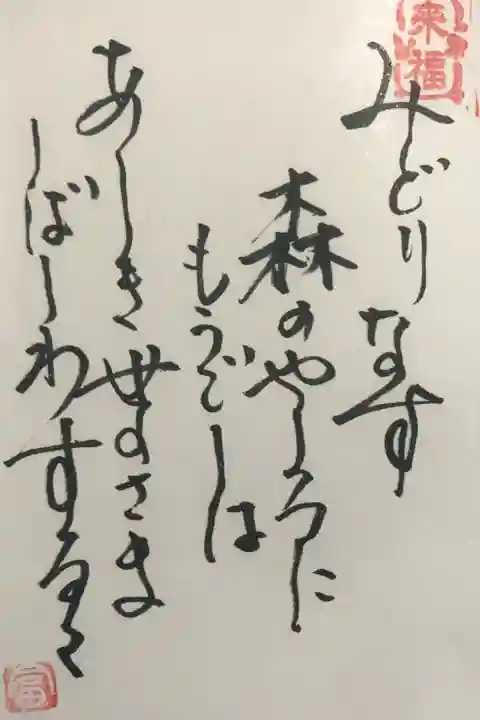 來福
みどりなす
森のやしろに
もうでしは
あしき世のさま
しばしわするゝ
福